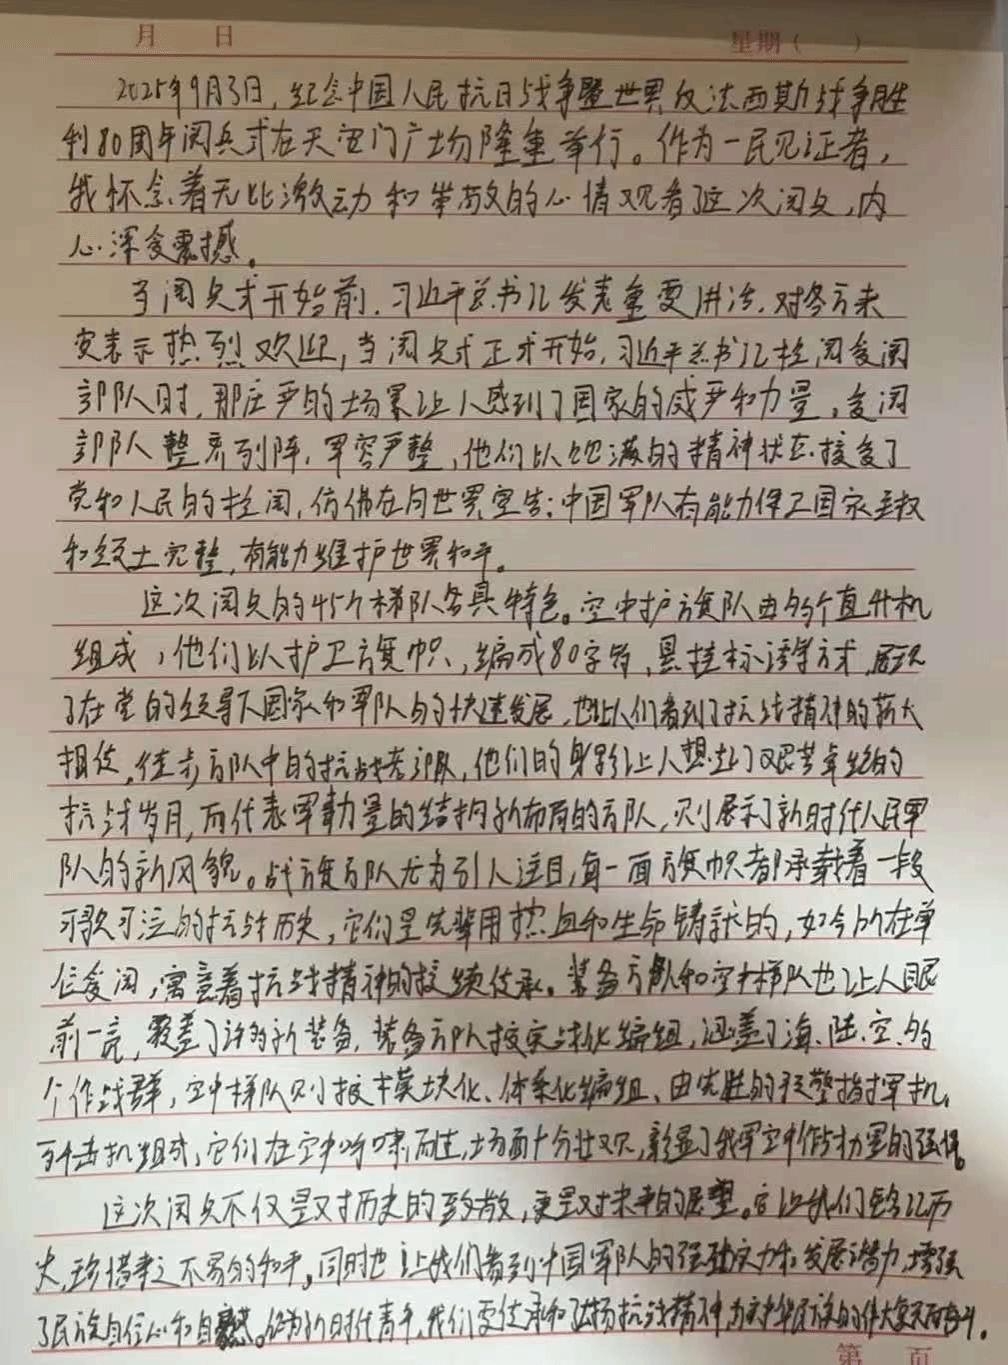 月 日 星期( )
2025年9月3日,纪念中国人民抗日战争暨世界反法西斯战争胜
利80周年阅兵式在天安门广场隆重举行。作为一民见证者,
我怀念着无比激动和崇敬的心情观看了这次阅兵,内
心深受震撼。
当阅兵式开始前,习近平总书记发表重要讲话,对各方来
宾表示热烈欢迎,当阅兵式正式开始,习近平总书记检阅受阅
部队时,那庄严的场景让人感到了国家的威严和力量,受阅
部队整齐列阵,军容严整,他们以饱满的精神状态接受了
党和人民的检阅,仿佛在向世界宣告:中国军队有能力保卫国家主权
和领土完整,有能力维护世界和平。
这次阅兵的45个梯队各具特色。空中护旗队由多个直升机
组成,他们以护卫旗帜,编成80字符,悬挂标语等方式,展现
了在党的领导下国家和军队的快速发展,也让人们看到了抗战精神的薪火
相传,徒步方队中的抗战老部队,他们的身影让人想起了艰苦卓绝的
抗战岁月,而代表军事力量的结构新布局的方队,则展示了新时代人民军
队的新风貌。战旗方队尤为引人注目,每一面旗帜都承载着一段
可歌可泣的抗战历史,它们是先辈用热血和生命铸就的,如今所在单
位受阅,寓意着抗战精神的接续传承。装备方队和空中梯队也让人眼
前一亮,覆盖了许多新装备,装备方队按实战化编组,涵盖了海、陆、空、多
个作战群,空中梯队则按模块化、体系化编组、由先进的预警指挥机,
轰击机组成,它们在空中呼啸而过,场面十分壮观,彰显了我军空中作战力量的强大。
这次阅兵不仅是对历史的致敬,更是对未来的展望。它让我们铭记历
史,珍惜来之不易的和平,同时也让我们看到中国军队的强劲实力和发展潜力,增强
了民族自信心和自豪感。作为新时代青年,我们要传承和弘扬抗战精神,为实现中华民族的伟大复兴而奋斗。
第 页